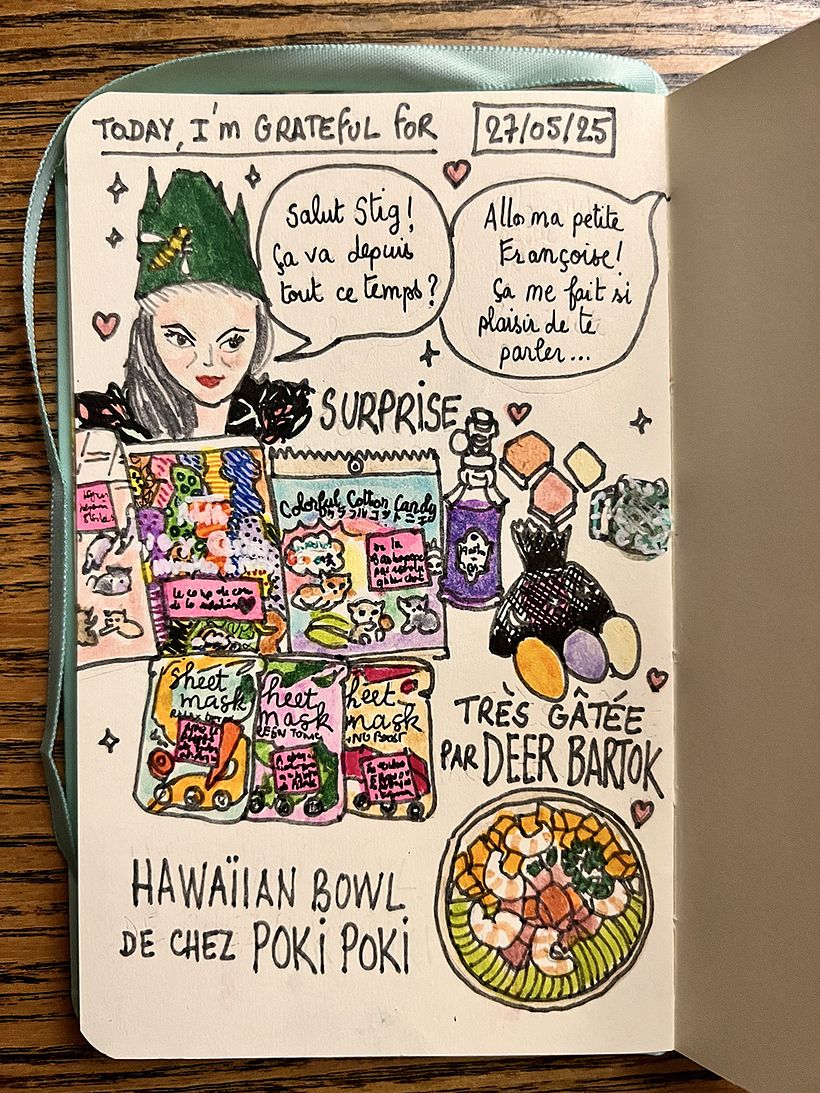 TODAY, I'M GRATEFUL FOR
27/05/25
Salut Stig!
Ça va depuis
tout ce temps?
Allo ma petite
Françoise!
Ça me fait si
plaisir de te
parler...
SURPRISE
Colorful Cotton Candy
カラフルコットンキャンディ
de la
Sheet
mask
heet
mask
heet
mask
TRÈS GÂTÉE
PAR DEER BARTOK
HAWAÏIAN BOWL
DE CHEZ POKI POKI